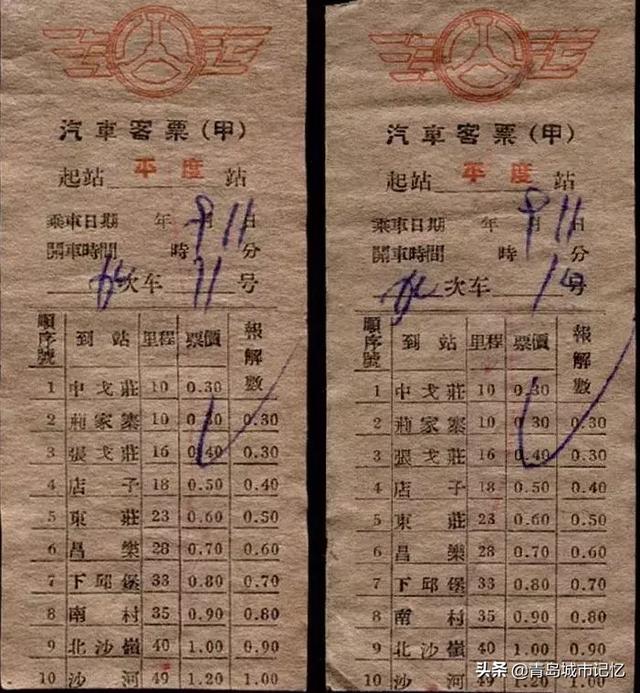 汽車客票(甲)
起站 平度 站
乘車日期 年 9月 11日
開車時間 時 分
次车 11号
順序號 到站 里程 票價 報解數
1 中戈莊 10 0.30
2 家寨 10 0.30 0.30
3 張戈莊 16 0.40 0.30
4 店子 18 0.50 0.40
5 東莊 23 0.60 0.50
6 昌樂 28 0.70 0.60
7 下邱堡 33 0.80 0.70
8 南村 35 0.90 0.80
9 北沙嶺 40 1.00 0.90
10 沙河 49 1.20 1.00
汽車客票(甲)
起站 平度 站
乘車日期 年 9月 11日
開車時間 時 分
次车 号
順序號 到站 里程 票價 報解數
1 中戈莊 10 0.30
2 家寨 10 0.30 0.30
3 張戈莊 16 0.40 0.30
4 店子 18 0.50 0.40
5 東莊 23 0.60 0.50
6 昌樂 28 0.70 0.60
7 下邱堡 33 0.80 0.70
8 南村 35 0.90 0.80
9 北沙嶺 40 1.00 0.90
10 沙河 49 1.20 1.00
头条 @青岛城市记忆